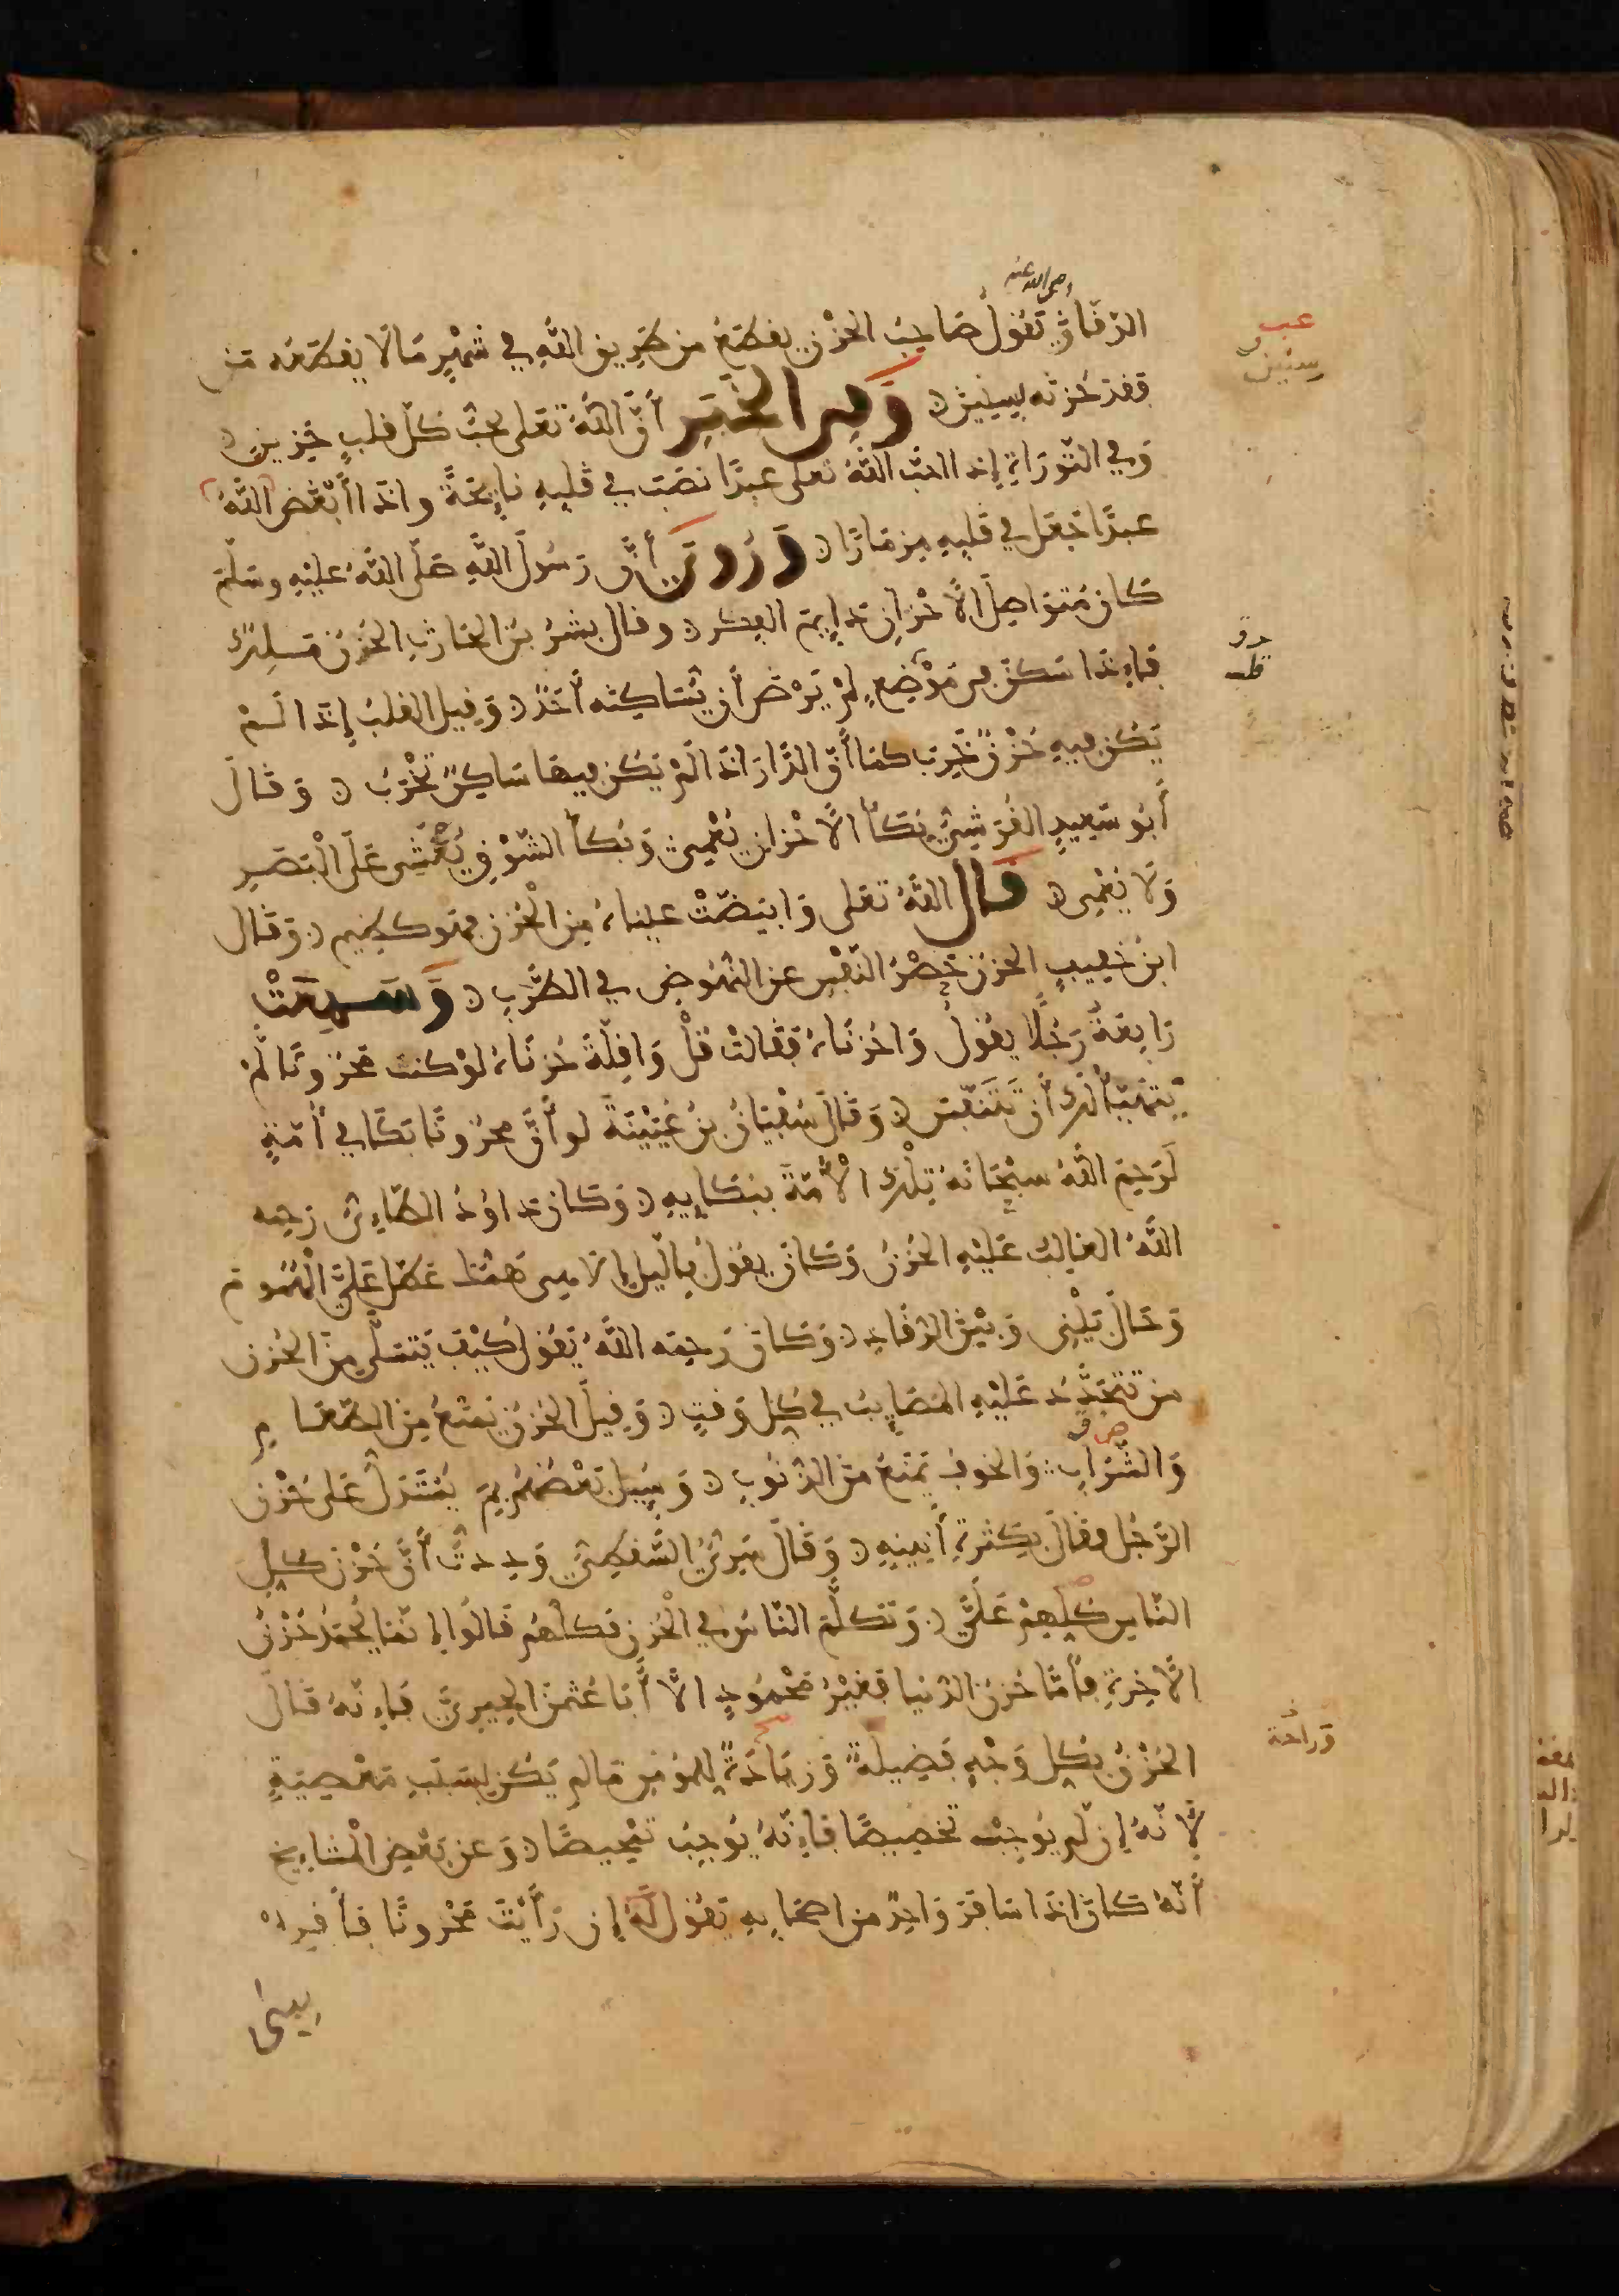 رضى الله عنه
الدقاق يقول صاحب الحزن يقطع من طريق الله في شهر ما لا يقطعه من
فقد حزنه بسنين وفى الخبر أن الله تعلى يحب كل قلب حزين
وفي التوراة إذا احب الله تعلى عبدا نصب في قلبه نايحة واذا أبغض الله
عبدا جعل في قلبه مزمارا وروى أن رسول الله صلى الله عليه وسلم
كان متواصل الأحزان دايم الفكر وقال بشر بن الحارث الحزن ملك
فإذا سكن في موضع لم يرض أن يساكنه أحد وقيل القلب إذا لم
يكن فيه حزن خرب كما أن الدار اذا لم يكن فيها ساكن تخرب وقال
أبو سعيد القرشي بكأ الأحزان يعمي وبكأ الشوق يعشى على البصر
ولا يعمى قال الله تعلى وابيضت عيناه من الحزن فهو كظيم وقال
ابن خفيف الحزن حصر النفس عن النهوض في الطرب وسمعت
رابعة رجلا يقول واحزناه فقالت قل واقلة حزناه لو كنت محزونا لم
يتهيأ لك أن تتنفس وقال سفيان بن عيينة لو أن محزونا بكا في أمة
لرحم الله سبحانه تلك الأمة ببكايه وكان داود الطاءي رحمه
الله الغالب عليه الحزن وكان يقول باليل إلاهى همك عطل علي الهموم
وحال بيني وبين الرقاد وكان رحمه الله يقول كيف يتسلى من الحزن
من تتجدد عليه المصايب في كل وقت وقيل الحزن يمنع من الطعام
والشراب والخوف يمنع من الذنوب وسيل بعضهم بم يستدل على حزن
الرجل فقال بكثرة أنينه وقال سري السقطي وددت أن حزن كل
الناس كلهم علي وتكلم الناس في الحزن فكلهم قالوا إنما يحمد حزن
الأخرة فأما حزن الدنيا فغير محمود الا أبا عثمن الحيري فإنه قال
الحزن بكل وجه فضيلة وزيادة للمومن مالم يكن بسبب معصية
لأنه إن لم يوجب تخصيصا فإنه يوجب تمحيصا وعن بعض المشايخ
أنه كان اذا سافر واحد من اصحابه يقول له إن رأيت محزونا فأقره